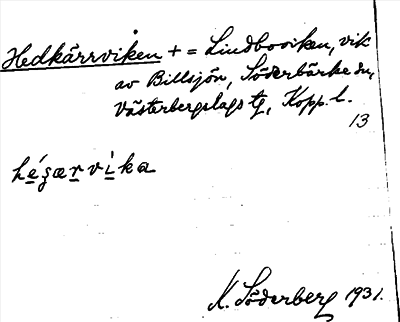 Hedkärrviken + = Lindboviken, vik
av Billsjön, Söderbärke sn,
Västerbergslags tg, Kopp. l.
13
héʒærvìka
K. Söderberg 1931.